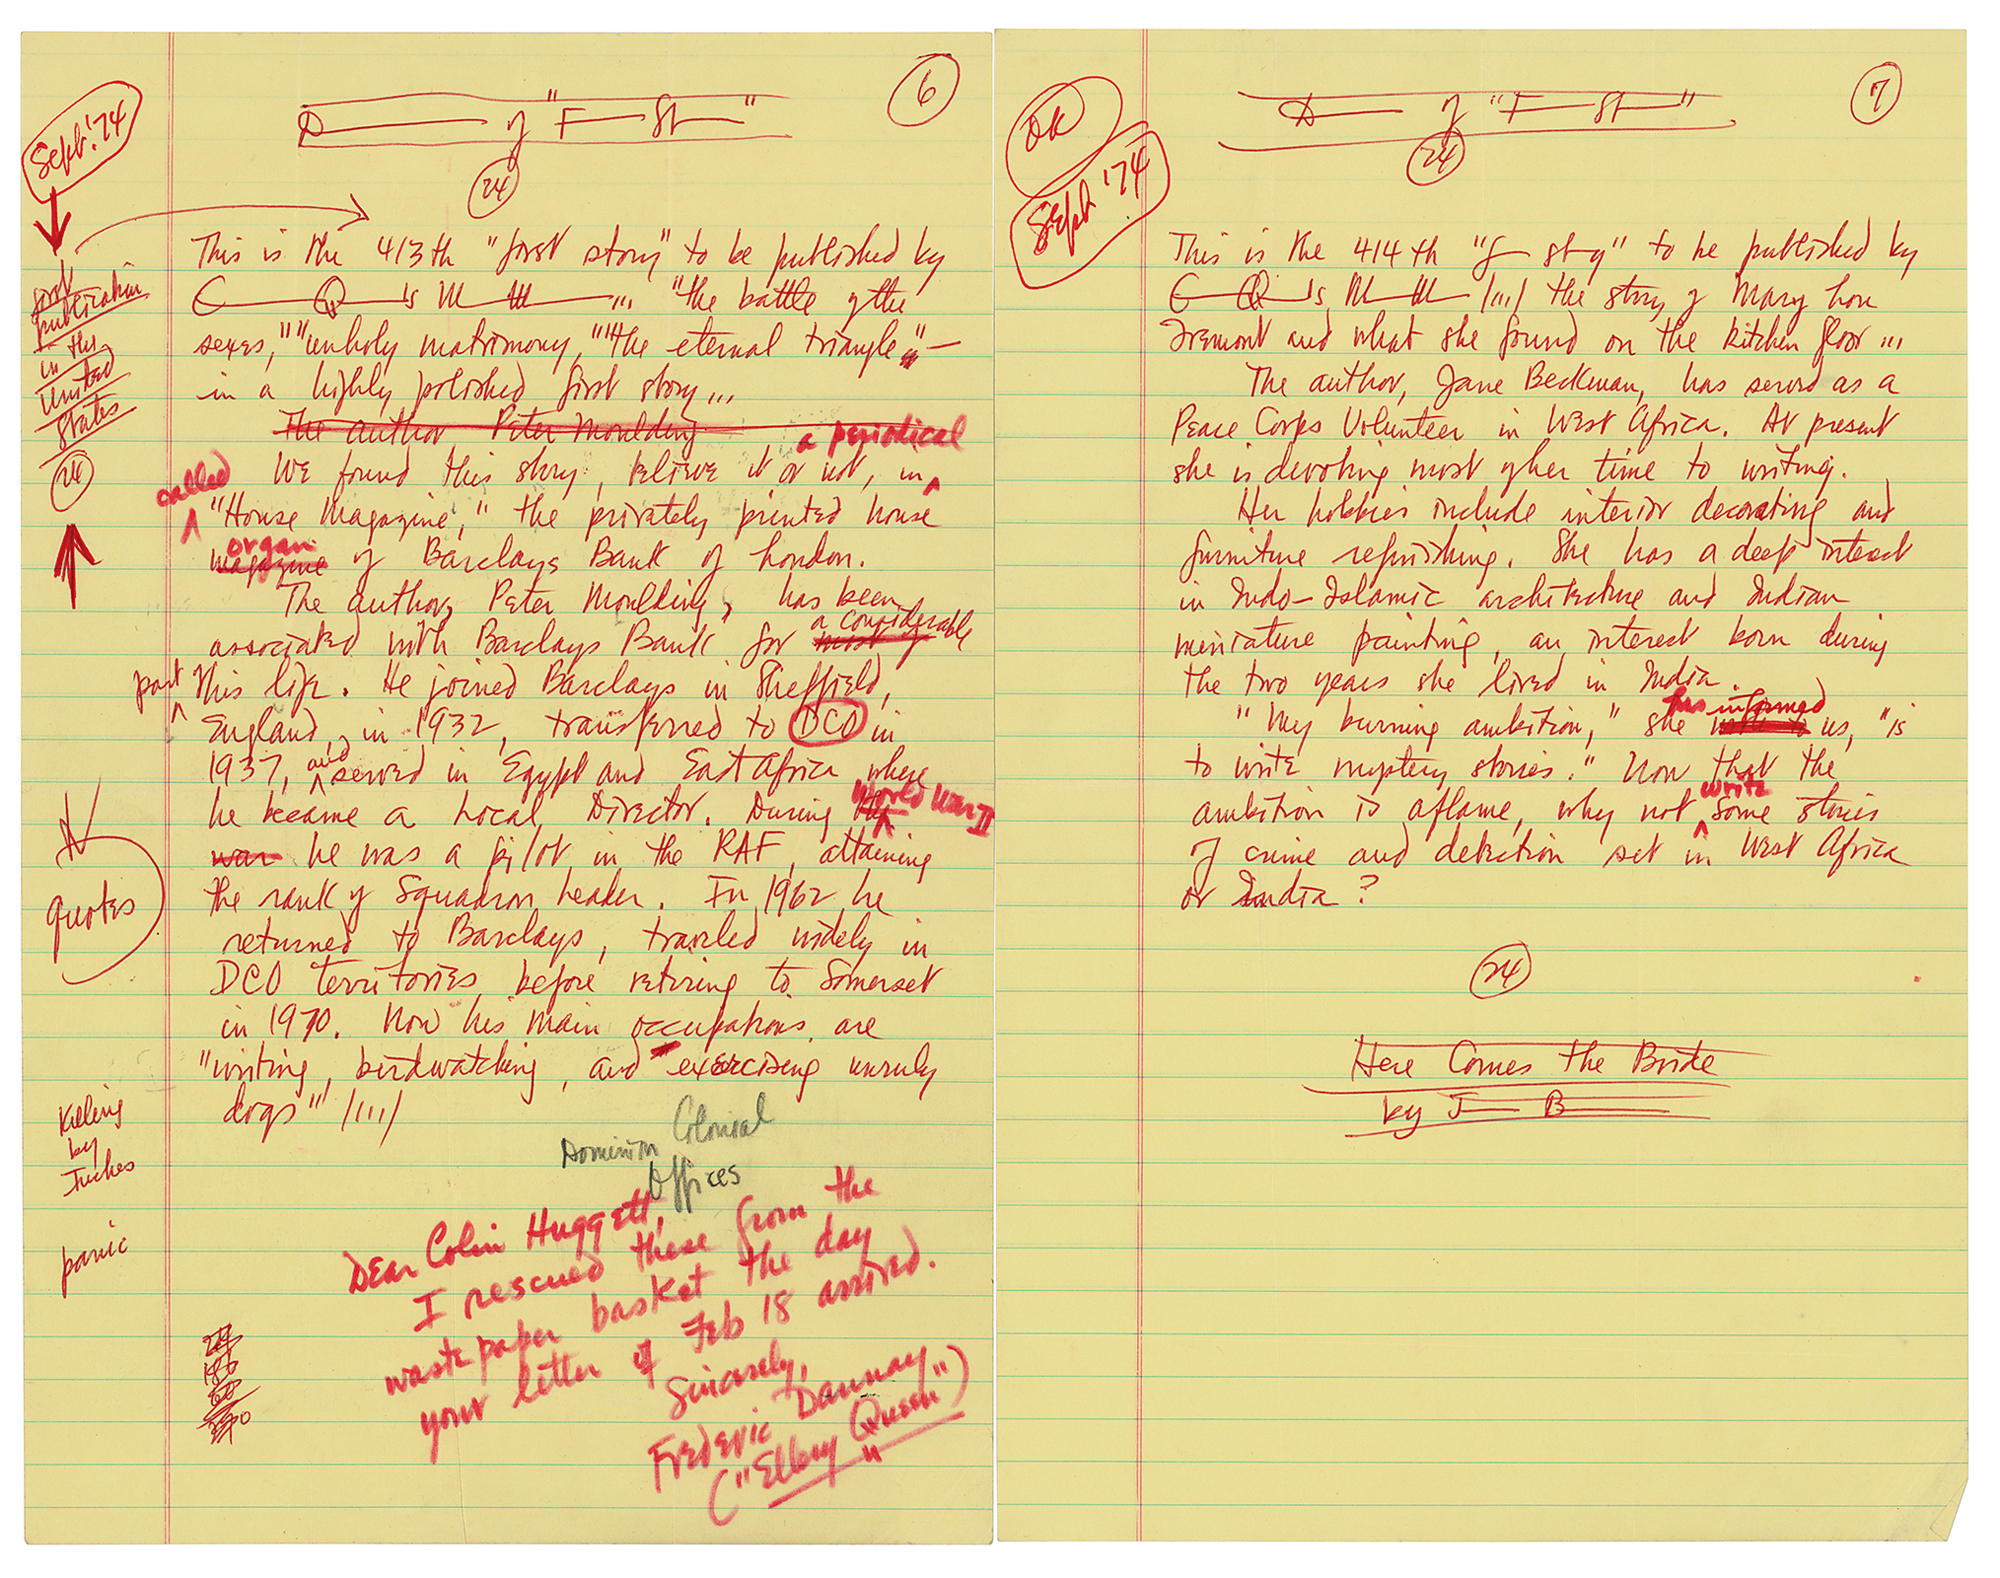 6
Sept. '74
D——— of "F—— St——"
24
first
publication
in the
United
States
24
This is the 413th "first story" to be published by
E—— Q——'s M—— M—— ... "the battle of the
sexes," "unholy matrimony," "the eternal triangle" —
in a highly polished first story ...
The author, Peter Moulding
a periodical
We found this story, believe it or not, in
called
"House Magazine," the privately printed house
organ
magazine of Barclays Bank of London.
The author, Peter Moulding, has been
a considerable
associated with Barclays Bank for most of
part
his life. He joined Barclays in Sheffield,
England, in 1932, transferred to DCO in
1937, and served in Egypt and East Africa where
World War II
he became a Local Director. During the
war he was a pilot in the RAF, attaining
the rank of Squadron Leader. In 1962 he
returned to Barclays, traveled widely in
DCO territories before retiring to Somerset
in 1970. Now his main occupations are
"writing, birdwatching, and exercising unruly
dogs" /.../
quotes
Killing
by
Inches
panic
Dominion Colonial
Offices
Dear Colin Huggett,
I rescued these from the
waste paper basket the day
your letter of Feb 18 arrived.
Sincerely,
Frederic Dannay
("Ellery Queen")
7
OK
Sept '74
D—— of "F—— St——"
24
This is the 414th "f— st—y" to be published by
E—— Q——'s M—— M—— /.../ the story of Mary Lou
Tremont and what she found on the kitchen floor ...
The author, Jane Beckman, has served as a
Peace Corps Volunteer in West Africa. At present
she is devoting most of her time to writing.
Her hobbies include interior decorating and
furniture refinishing. She has a deep interest
in Indo-Islamic architecture and Indian
miniature painting, an interest born during
the two years she lived in India.
has informed
"My burning ambition," she us, "is
to write mystery stories." Now that the
write
ambition is aflame, why not some stories
of crime and detection set in West Africa
or India?
24
Here Comes the Bride
by J—— B——